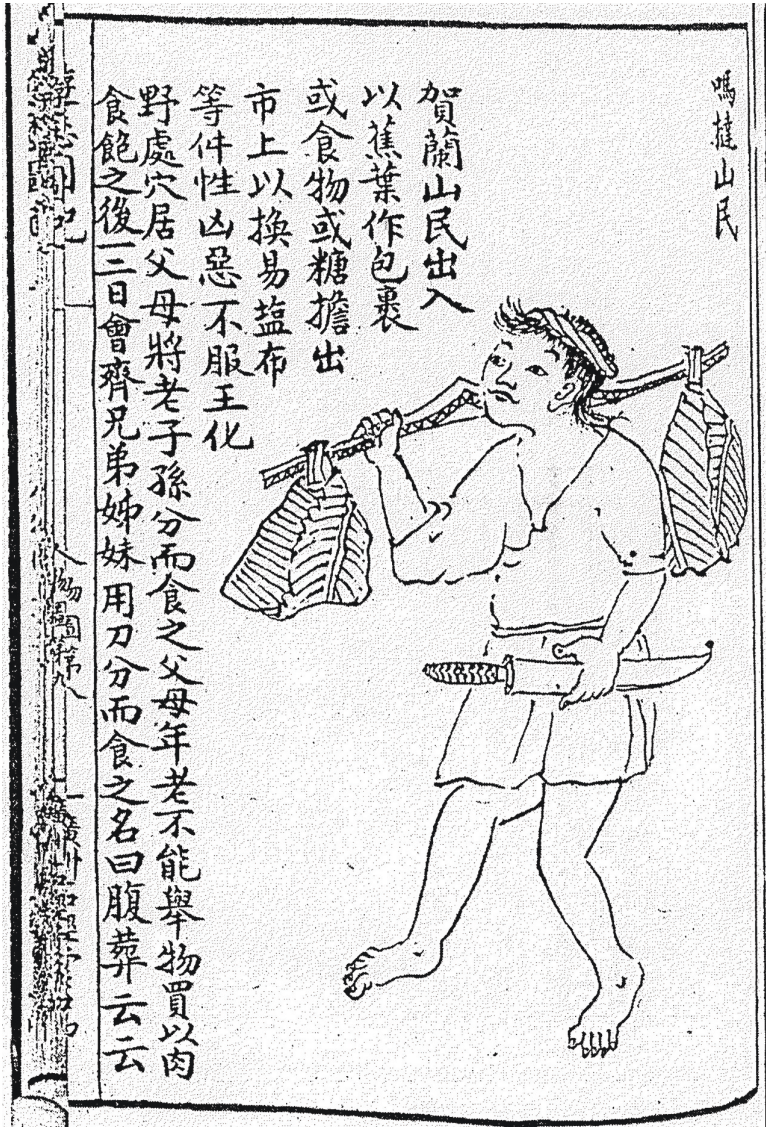 嗎撻山民
賀蘭山民出入
以蕉葉作包裹
或食物或糖擔出
市上以換易塩布
等件性凶惡不服王化
野處穴居父母將老子孫分而食之父母年老不能舉物買以肉
食飽之後三日會齊兄弟姊妹用刀分而食之名曰腹葬云云
人物圖第九